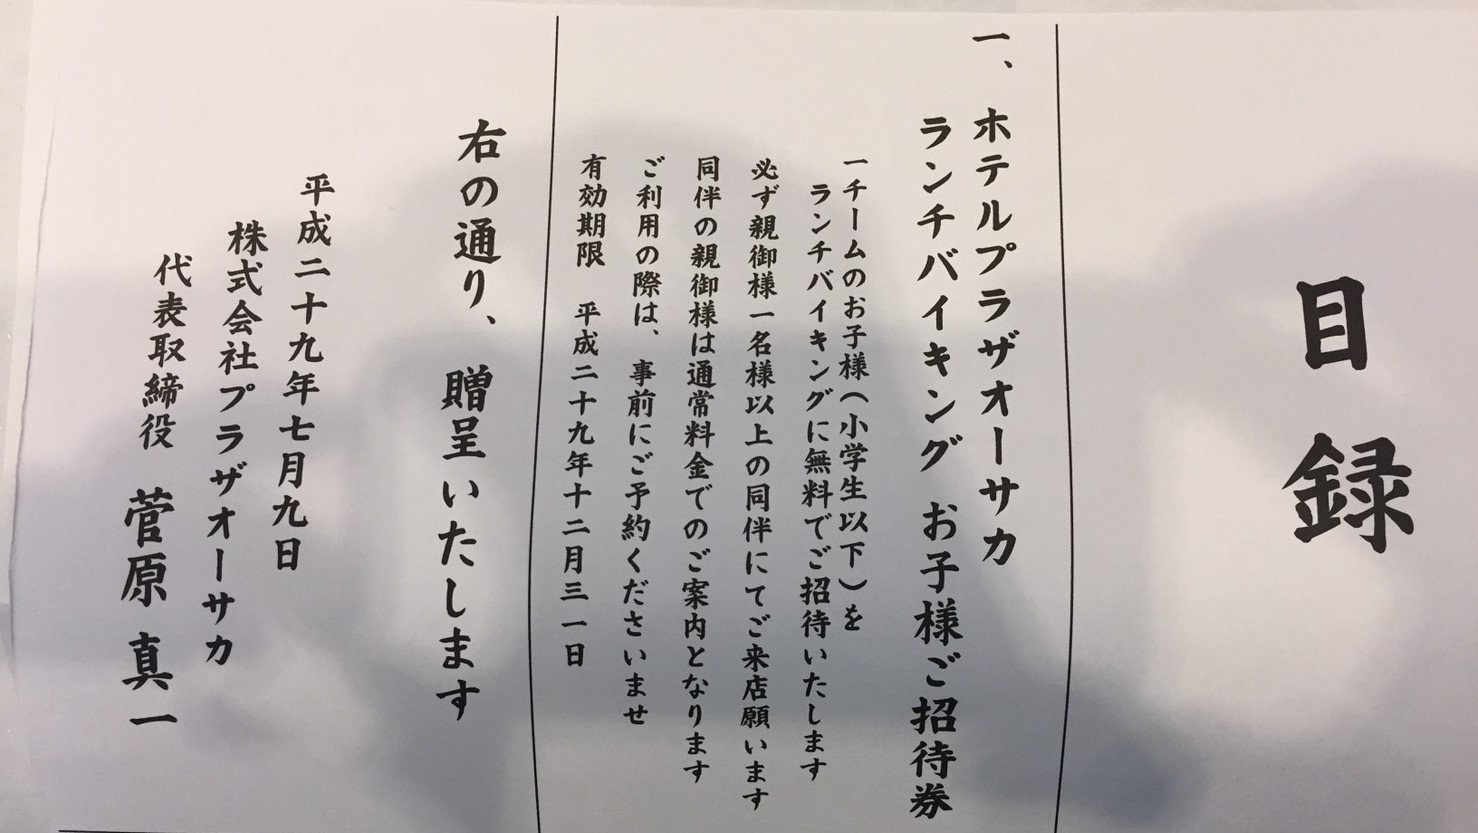 目録
一、ホテルプラザオーサカ
ランチバイキング お子様ご招待券
一チームのお子様（小学生以下）を
ランチバイキングに無料でご招待いたします
必ず親御様一名様以上の同伴にてご来店願います
同伴の親御様は通常料金でのご案内となります
ご利用の際は、事前にご予約くださいませ
有効期限 平成二十九年十二月三一日
右の通り、贈呈いたします
平成二十九年七月九日
株式会社プラザオーサカ
代表取締役 菅原真一